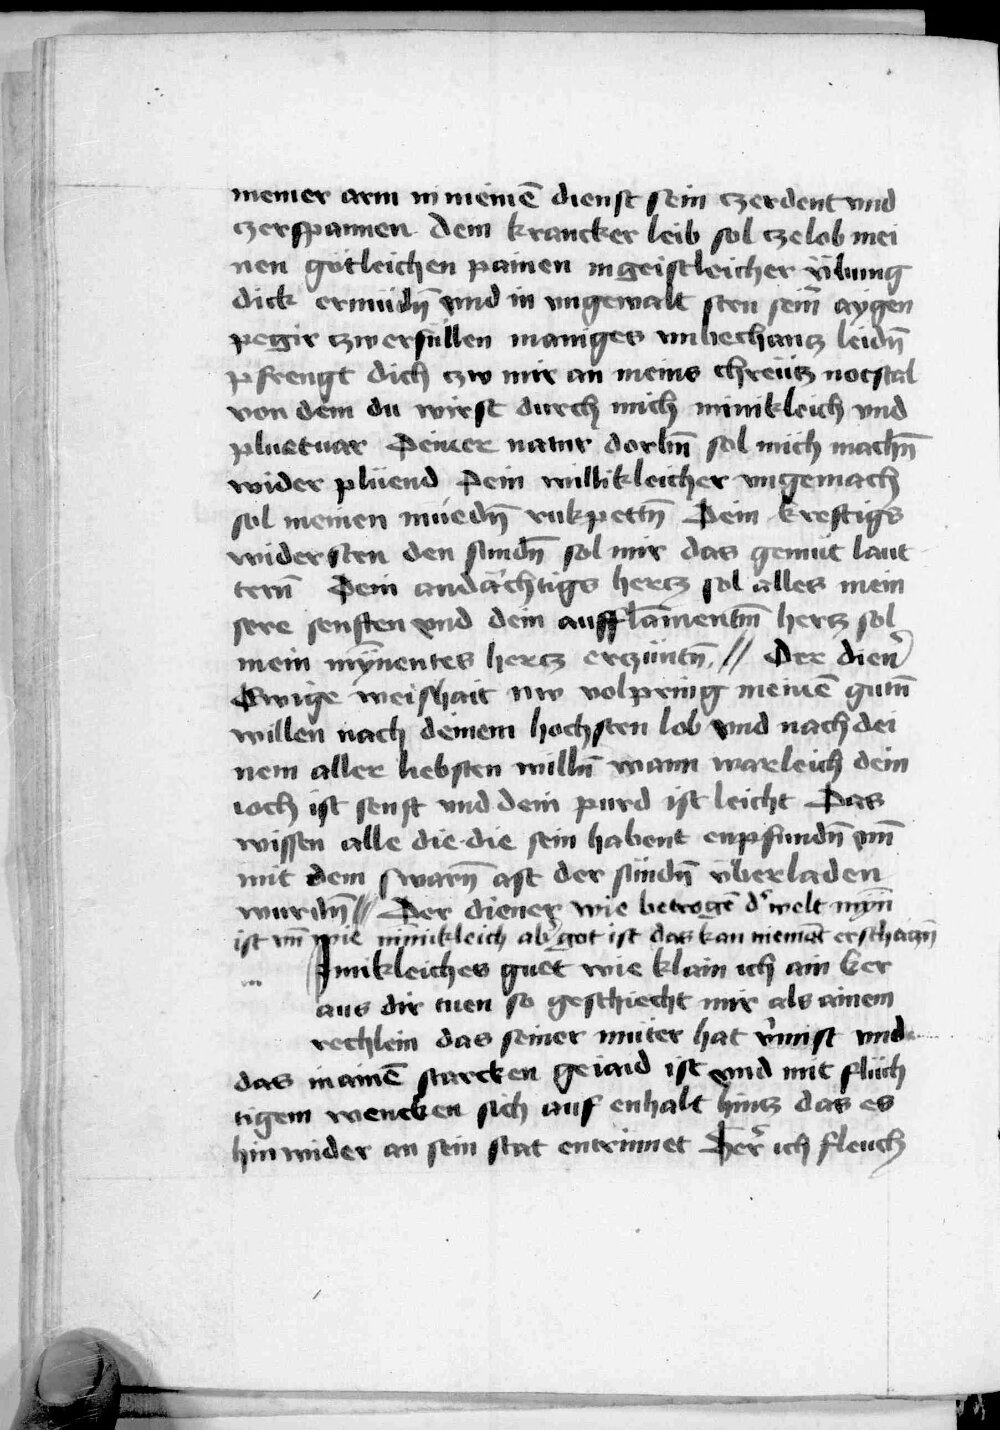 meiner arm in meinē dienst sein czerdent vnd
czerspannen Dein krancker leib sol cze lob mei
nen gotleichen painen in geistleicher v̈bung
dick ermüdn̄ vnd in vngewalt sten sein̄ aygen
pegir czw erfüllen maniges vnbechantz leidn̄
pfrengt dich czw mir an meins chreütz notstal
von dem du wirst durch mich minikleich vnd
pluetuar Deiner natur dorhn̄ sol mich machn̄
wider plüend Dein willikleicher vngemach
sol meinen müedn̄ rukpettn̄ Dein kreftigs
widersten den sündn̄ sol mir das gemüt laut
tern̄ Dein andächtigs hercz sol alles mein
sere senften vnd dein aufflāmentm̄ hertz sol
mein mÿnentes hercz erczüntn̄ // Der dien̾
Ewige weishait nw volpring meinē gutn̄
willen nach deinem hochsten lob vnd nach dei
nem aller liebsten willn̄ wann warleich dein
ioch ist senft vnd dein purd ist leicht Das
wissen alle die die sein habent enpfundn̄ vn̄
mit dem swarn̄ ast der sündn̄ v̈berladen
wurdn̄ // Der diener wie betrogē d̾ welt mÿn̄
ist vn̄ wie mīnikleich ab̾ got ist das kan niemāt
Inikleiches guet wie klain ich ain ker
aus dir tuen so geschiecht mir als ainem
rechlein das seiner müter hat v̾mist vnd
das in ainē starcken geiaid ist vnd mit flüch
tigem wencken sich auf enhalt hintz das es
hin wider an sein stat entrinnet Her̾ ich fleuch